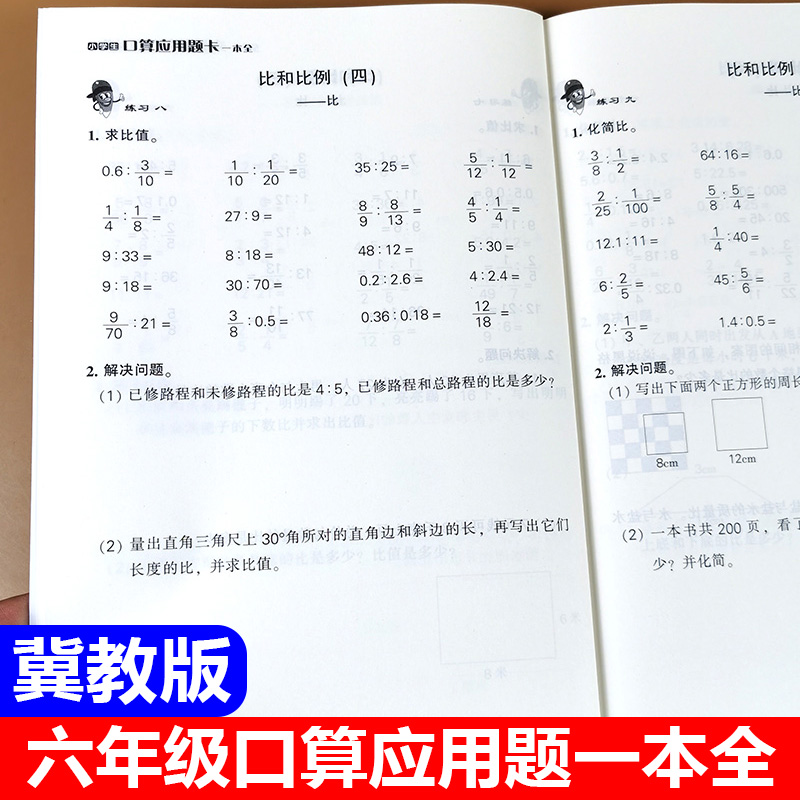 小学生口算应用题卡一本全
比和比例（四）
——比
练习八
1. 求比值。
0.6:3/10= 1/10:1/20= 35:25= 5/12:1/12=
1/4:1/8= 27:9= 8/9:8/13= 4/5:1/4=
9:33= 8:18= 48:12= 5:30=
9:18= 30:70= 0.2:2.6= 4:2.4=
9/70:21= 3/8:0.5= 0.36:0.18= 12/18=
2. 解决问题。
（1）已修路程和未修路程的比是4:5，已修路程和总路程的比是多少？
（2）量出直角三角尺上30°角所对的直角边和斜边的长，再写出它们
长度的比，并求比值。
比和比例
——比
练习九
1. 化简比。
3/8:1/2= 64:16=
2/25:1/100= 5/8:5/4=
12.1:11= 1/4:40=
6:2/5= 45:5/6=
2:1/3= 1.4:0.5=
2. 解决问题。
（1）写出下面两个正方形的周长
8cm 12cm
（2）一本书共200页，看了
少？并化简。
冀教版
六年级口算应用题一本全